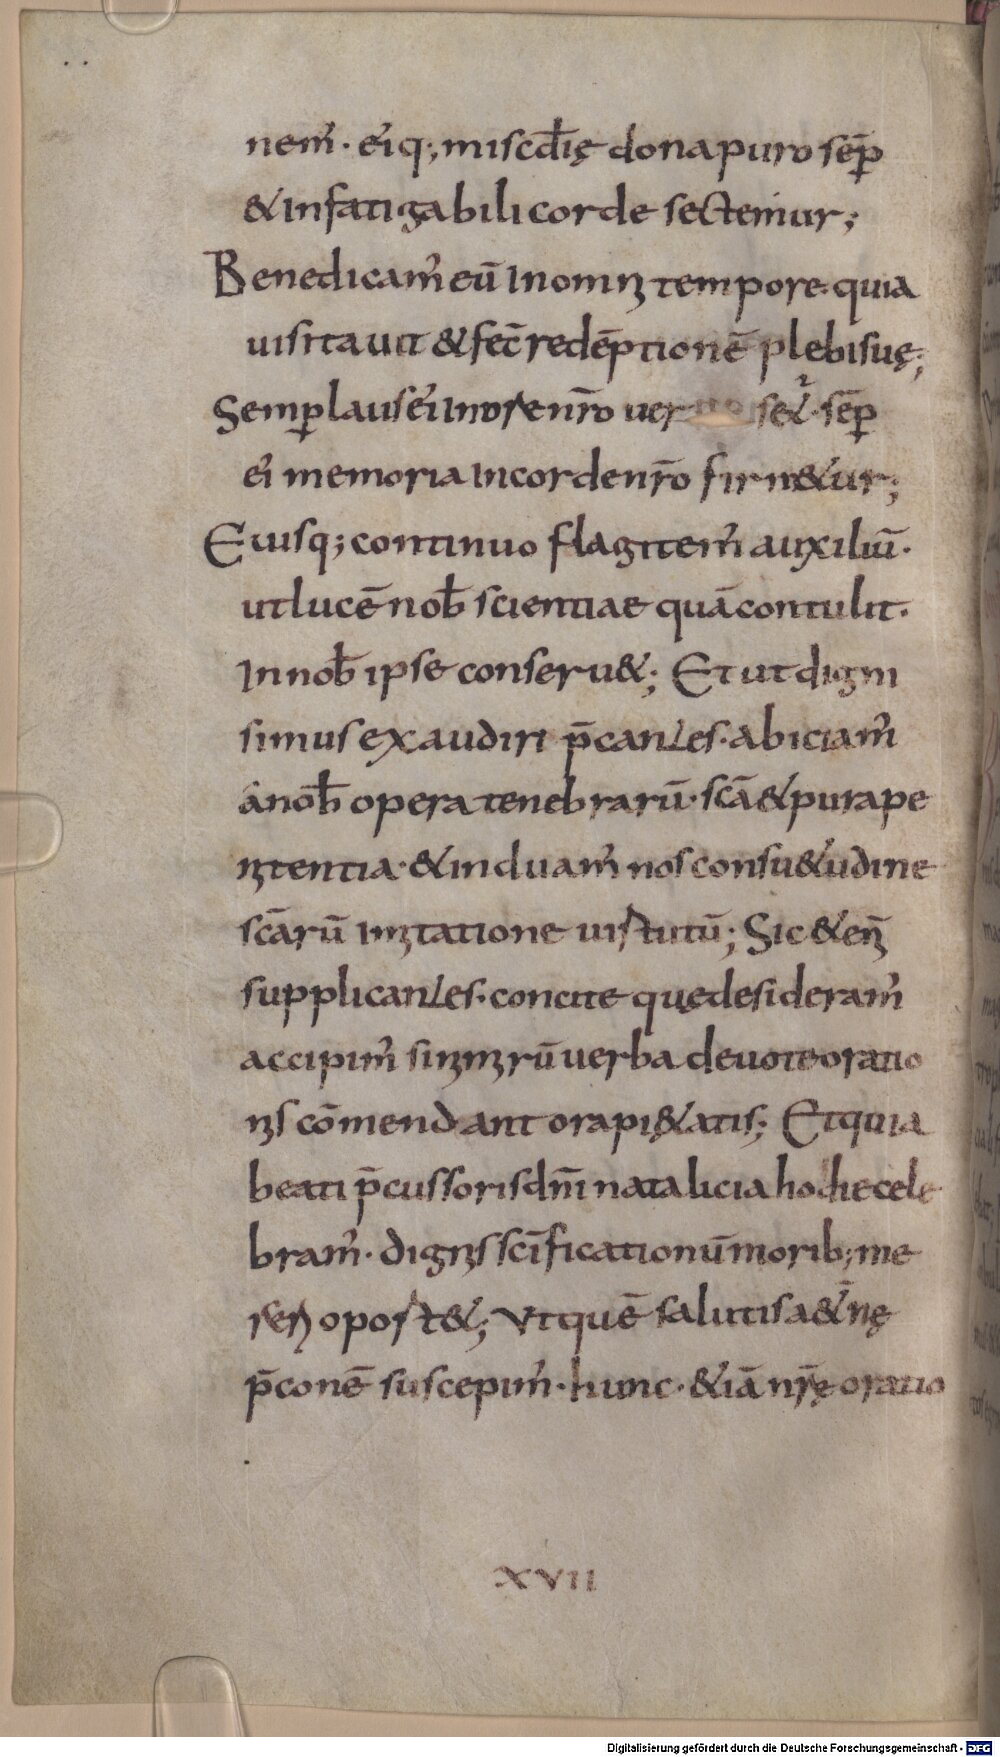 nem̅· ei̅q; misc̅dię dona puro sep̅
& infatigabili corde sectemur;
Benedicam̅ eu̅ in omni tempore· quia
uisitauit & fec̅ rede̅ptione̅ plebi suę;
Semp̅ laus ei̅ in ore nr̅o uer se&· sep̅
ei̅ memoria in corde nr̅o firm&ur;
Eiusq; continuo flagitem̅ auxiliu̅·
ut luce̅ nob̅ scientiae qua̅ contulit·
In nob̅ ipse conseru&; Et ut digni
simus exaudiri p̅cantes· abiciam̅
a nob̅ opera tenebraru̅· sc̅a & pura pe
nitentia· & induam̅ nos consu&udine
sc̅aru̅ imitatione uirtutu̅; Sic & eni̅
supplicantes· concite quę desideram̅
accipim̅ si nimiru̅ uerba deuote oratio
nis co̅mendant ora pi&atis; Et quia
beati p̅cussoris dn̅i natalicia hodie cele
bram̅· dignis sc̅ificationu̅ morib; me
reri oport&; Ut que̅ salutis a&̅nę
p̅cone̅ suscepim̅· hunc· &ia̅ nr̅ę oratio
XVII
Digitalisierung gefördert durch die Deutsche Forschungsgemeinschaft - DFG